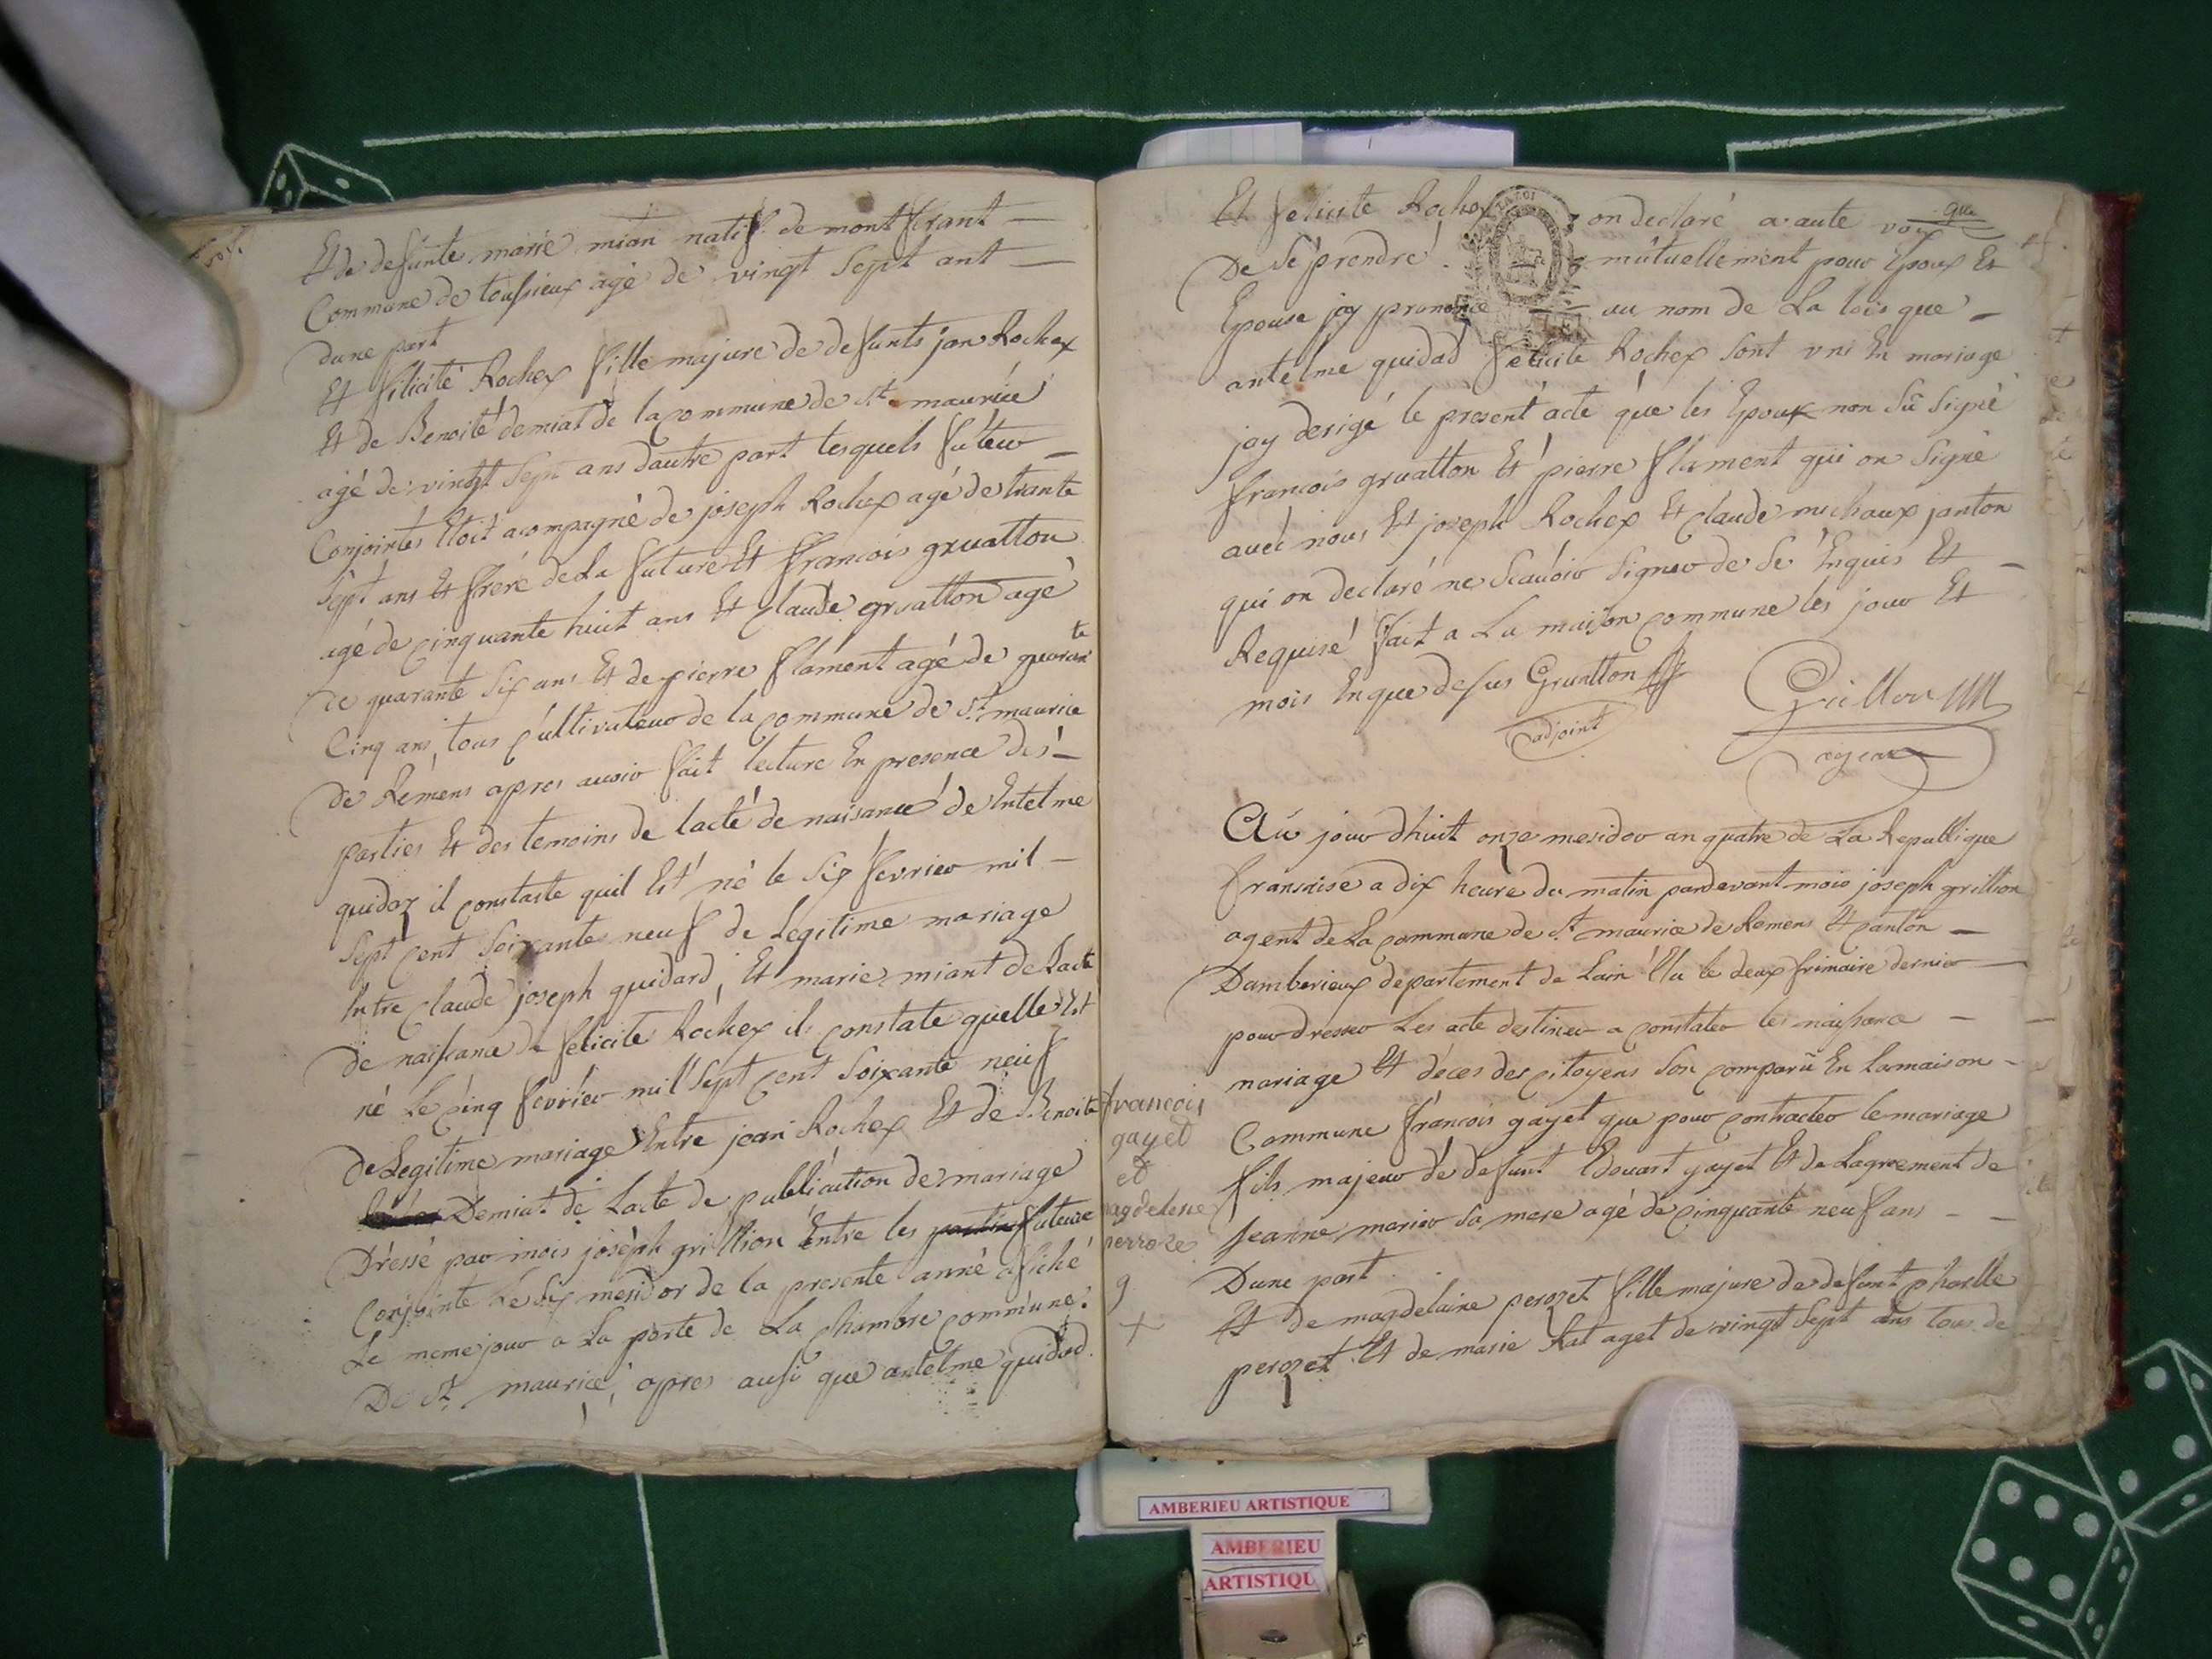 Et de defunte marie mian natif de mont frant
Commune de toussieux agé de vingt sept ant
dune part
Et filicité Rochex fille majure de defunts jan Rochex
Et de Benoité demiat de la commune de st. maurice
agé de vingt Sept ans dautre part lesquels futeur
Conjointes Etoit acompagné de joseph Rochex agé de trante
Sept ans Et frere de La future Et francois gruatton
agé de cinquante huit ans Et Claude gruatton agé
De quarante Six ans Et de pierre flament agé de quarante
Cinq ans, tous cultivateur de la commune de st. maurice
De Rémens apres avoir fait lecture En presence des
parties Et des temoins de lacté de naisance de Entelme
quidoz il constaste quil Est né le Six fevrier mil
Sept cent Soixante neuf de Legitime mariage
Entre Claude joseph guidard, Et marie miant de Lacte
De naissance de felicite Rochex il constate quelle Est
né Le cinq fevrier mil Sept cent Soixante neuf
De Legitime mariage Entre jean Rochex Et de Benoite
Demiat de Lacte de publication de mariage
Dressé par mois joseph grillion Entre les parties futeure
Conjointe Le Six mesidor de la presente anné afiché
Le meme jour a La porte de La chambre commune
De st. maurice, apres ausi que antelme quidad
Et felicite Rochex on declaré a aute voix que
De Sé prendre mutuellement pour Epoux Et
Epouse joy prononce au nom de La lois que
antelme quidad felicite Rochex Sont uni En mariage
joy derigé le present acte que les Epoux non Sû Signé
francois gruatton Et pierre flament qui on Signé
avec nous Et joseph Rochex Et Claude michaux janton
qui on declaré ne Scavoir Signer de Se Enquis Et
Requisé fait a La maison commune les jour Et
mois En que desus Gruatton
adjoint
Grillion
agent
Au jour dhuit onze mesidor an quatre de La Republique
fransaise a dix heure du matin pardevant mois joseph grillion
agent de La commune de st. maurice de Remens Et canton
Damberieux departement de Lain Elu le deux frimaire dernier
pour dresser Les acte destiner a constater les naissance
mariage Et déces des citoyens Son comparu En La maison
Commune francois gayet que pour contracter le mariage
fils majeur de defunt Edouart gayet Et de Lagreement de
Jeanne marier sa mere agé de cinquante neuf ans
Dune part
Et de magdelaine perozet fille majure de defunt charlle
perozet Et de marie Rat aget de vingt Sept ans tous de
francois
gayet
et
magdelene
perroze
9
+
AMBERIEU ARTISTIQUE
AMBERIEU
ARTISTIQU